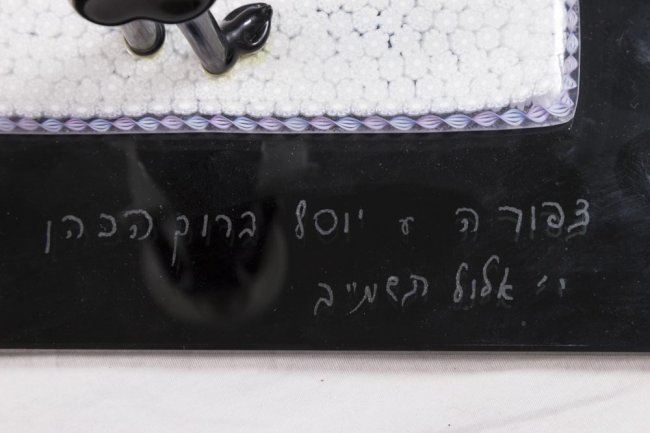 צפורה ע יוסף ברוק הכהן
י׳ אלול תשמ״ב